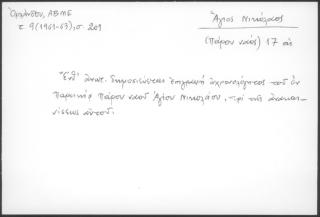 Ὀρλάνδου, ΑΒΜΕ
τ. 9 (1961-63), σ. 201
Ἅγιος Νικόλαος
(Πάρου ναός) 17 αἰ
Ἔνθ' ἀνωτ. δημοσιεύεται ἐπιγραφή ἀχρονολόγητος τοῦ ἐν
Παροικίᾳ Πάρου ναοῦ Ἁγίου Νικολάου, περὶ τῆς ἀνακαι-
νίσεως αὐτοῦ.